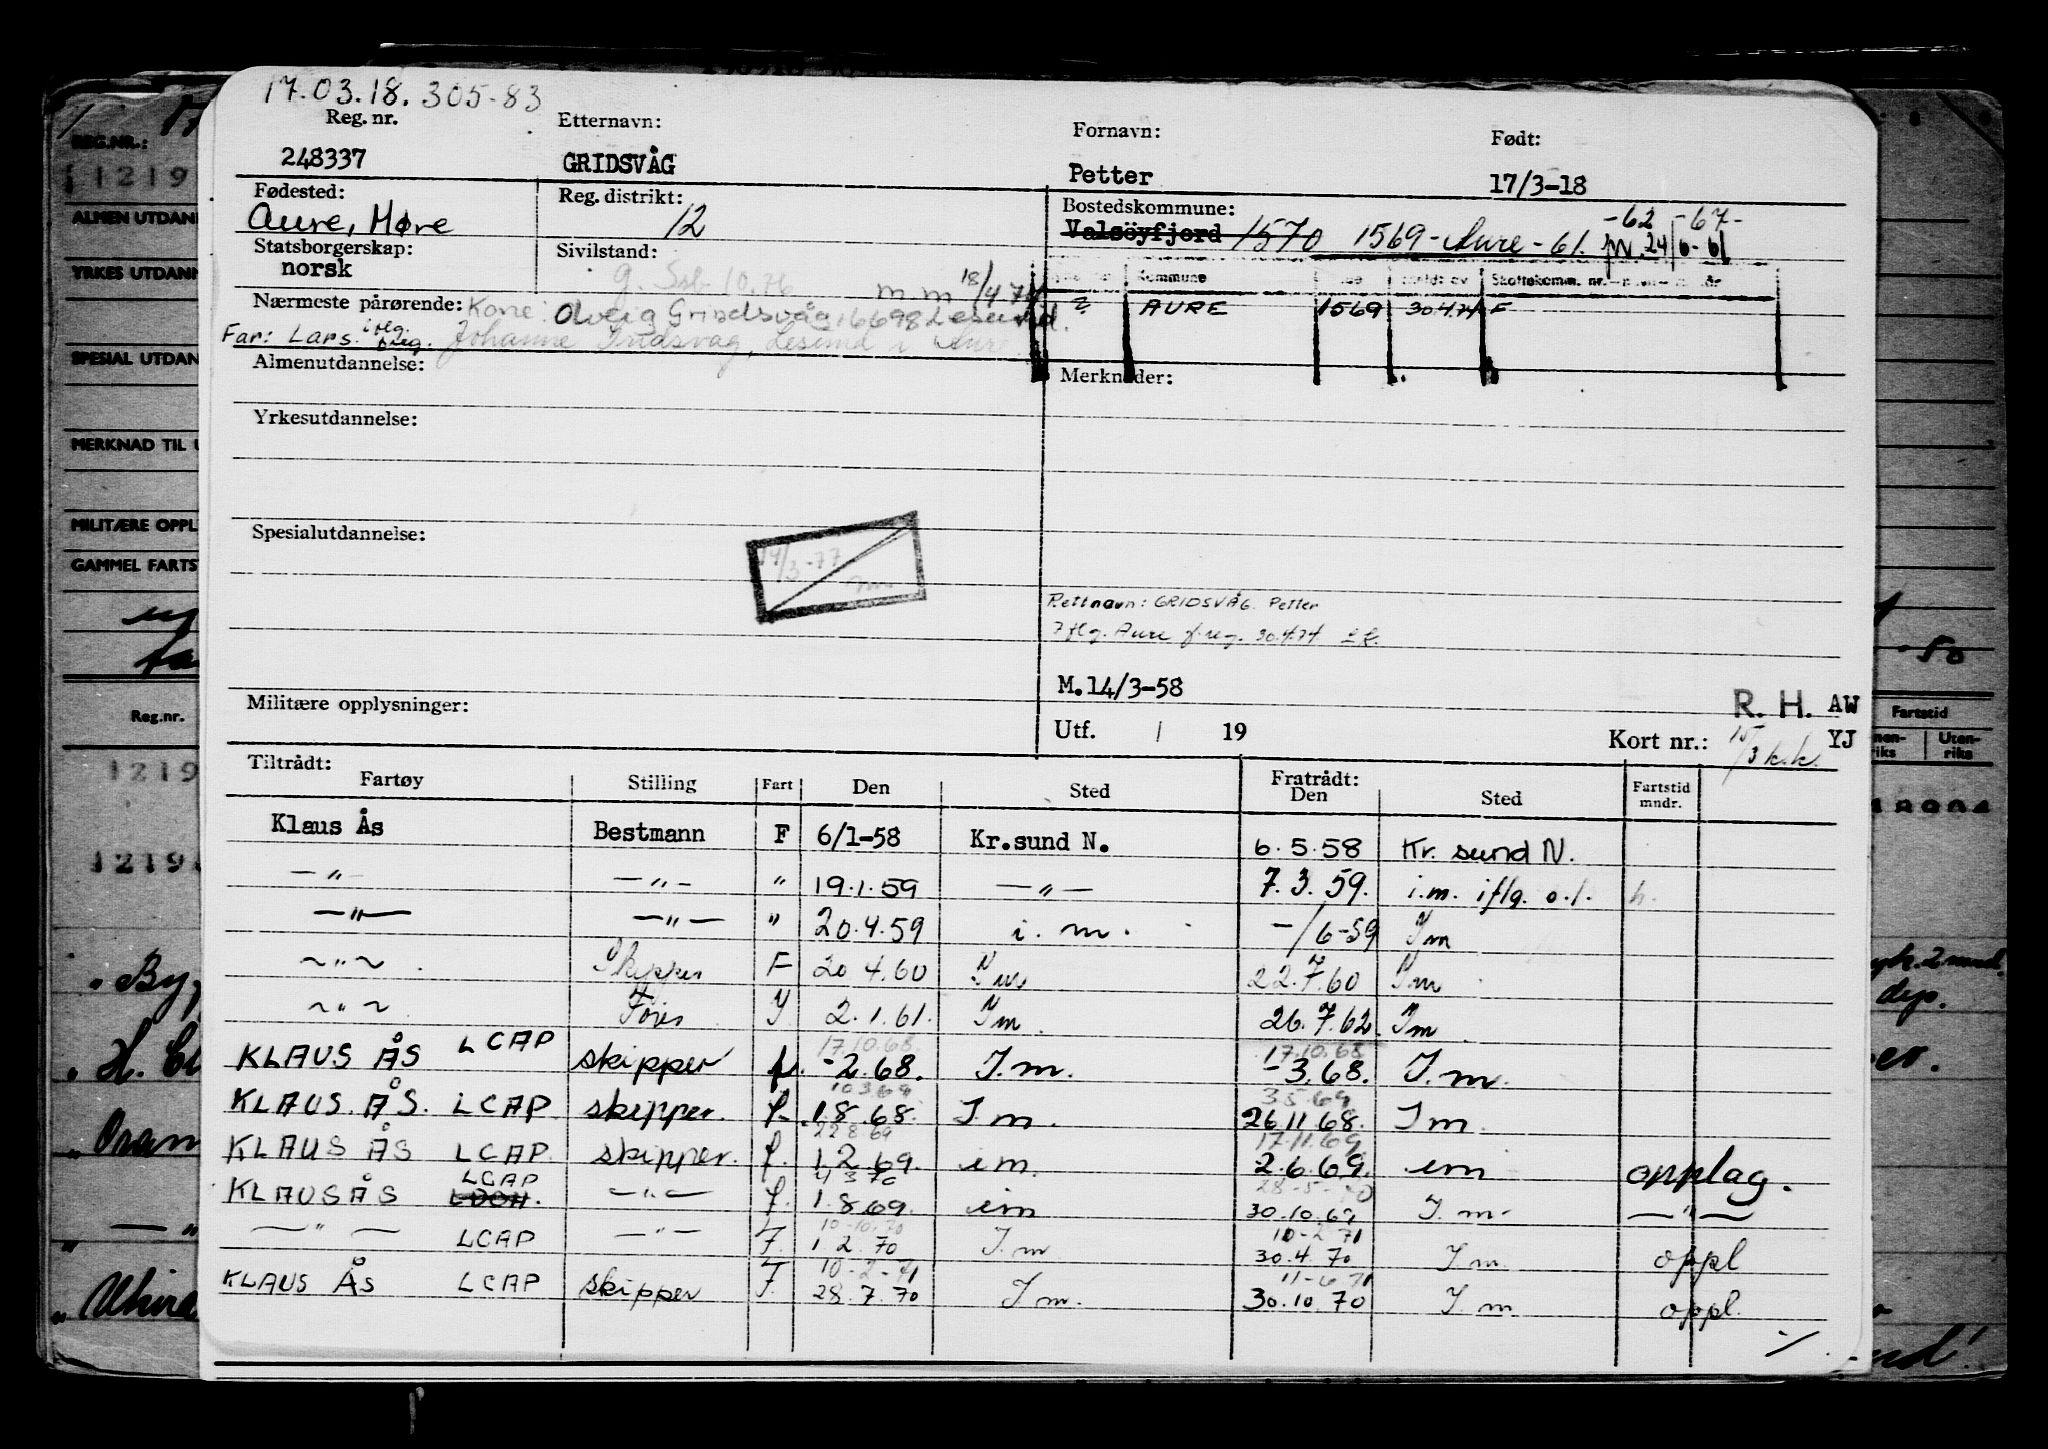 17.03.18. 305-83
Reg. nr. Etternavn: Fornavn: Født:
248337 GRIDSVÅG Petter 17/3-18
Fødested: Reg. distrikt: Bostedskommune: -62 -67-
Aure, Møre 12 Valsöyfjord 1570 1569-Aure-61. 24/6-61
Statsborgerskap: Sivilstand:
norsk g. Ssb 10.76 mm 18/4 74
Kommune Skattekomm. nr.
Nærmeste pårørende: Kone: Gridsvåg 6698 Lesund. 2 AURE 1569 30.4.74 F
Far: Lars. Johanne Gridsvag, Lesund i Aure
Almenutdannelse: Merknader:
Yrkesutdannelse:
Spesialutdannelse:
14/3-77
Rettnavn: GRIDSVÅG. Petter
iflg. Aure f.reg. 30.4.74
M.14/3-58
Militære opplysninger: R. H. AW
Utf. / 19 Kort nr.: 15/3 k.k. YJ
Tiltrådt: Fratrådt:
Fartøy Stilling Fart Den Sted Den Sted Fartstid mndr.
Klaus Ås Bestmann F 6/1-58 Kr.sund N. 6.5.58 Kr. sund N.
—"— —"— " 19.1.59 —"— 7.3.59. i.m. iflg. o.l. h.
—"— —"— " 20.4.59 i.m. -/6-59 Im
~"~ Skipper F 20 4.60 Im 22.7.60 Im
~"~ 2.1.61. Im. 26.7.62. Im
17.10.68. 17.10.68
KLAUS ÅS LCAP skipper f. -2.68. I.m. -3.68. I.m.
10 3 69 3 5 69
KLAUS. ÅS. LCAP skipper. f. 1.8.68. I m. 26.11.68. I m.
22 8 69 17.11.69
KLAUS ÅS LCAP. skipper. f. 1.2.69. im. 2.6.69. im opplag.
LCAP 4 3 70 28-5-70
KLAUS ÅS —"— f. 1.8.69. im 30.10.69 I.m. —"—
10-10.70 10-2 71
—"— LCAP —"— F. 1 2. 70 I.m 30.4.70 I m. oppl
10-2-71 11-6 71
KLAUS ÅS LCAP skipper F. 28.7.70 I m. 30.10.70 I.m oppl.
REG.NR.:
1219
ALMEN UTDANN
YRKES UTDANN
SPESIAL UTDAN
MERKNAD TIL U
MILITÆRE OPPL
GAMMEL FARTS
50
Reg.nr. Fartstid
Uten-riks
1219
1219